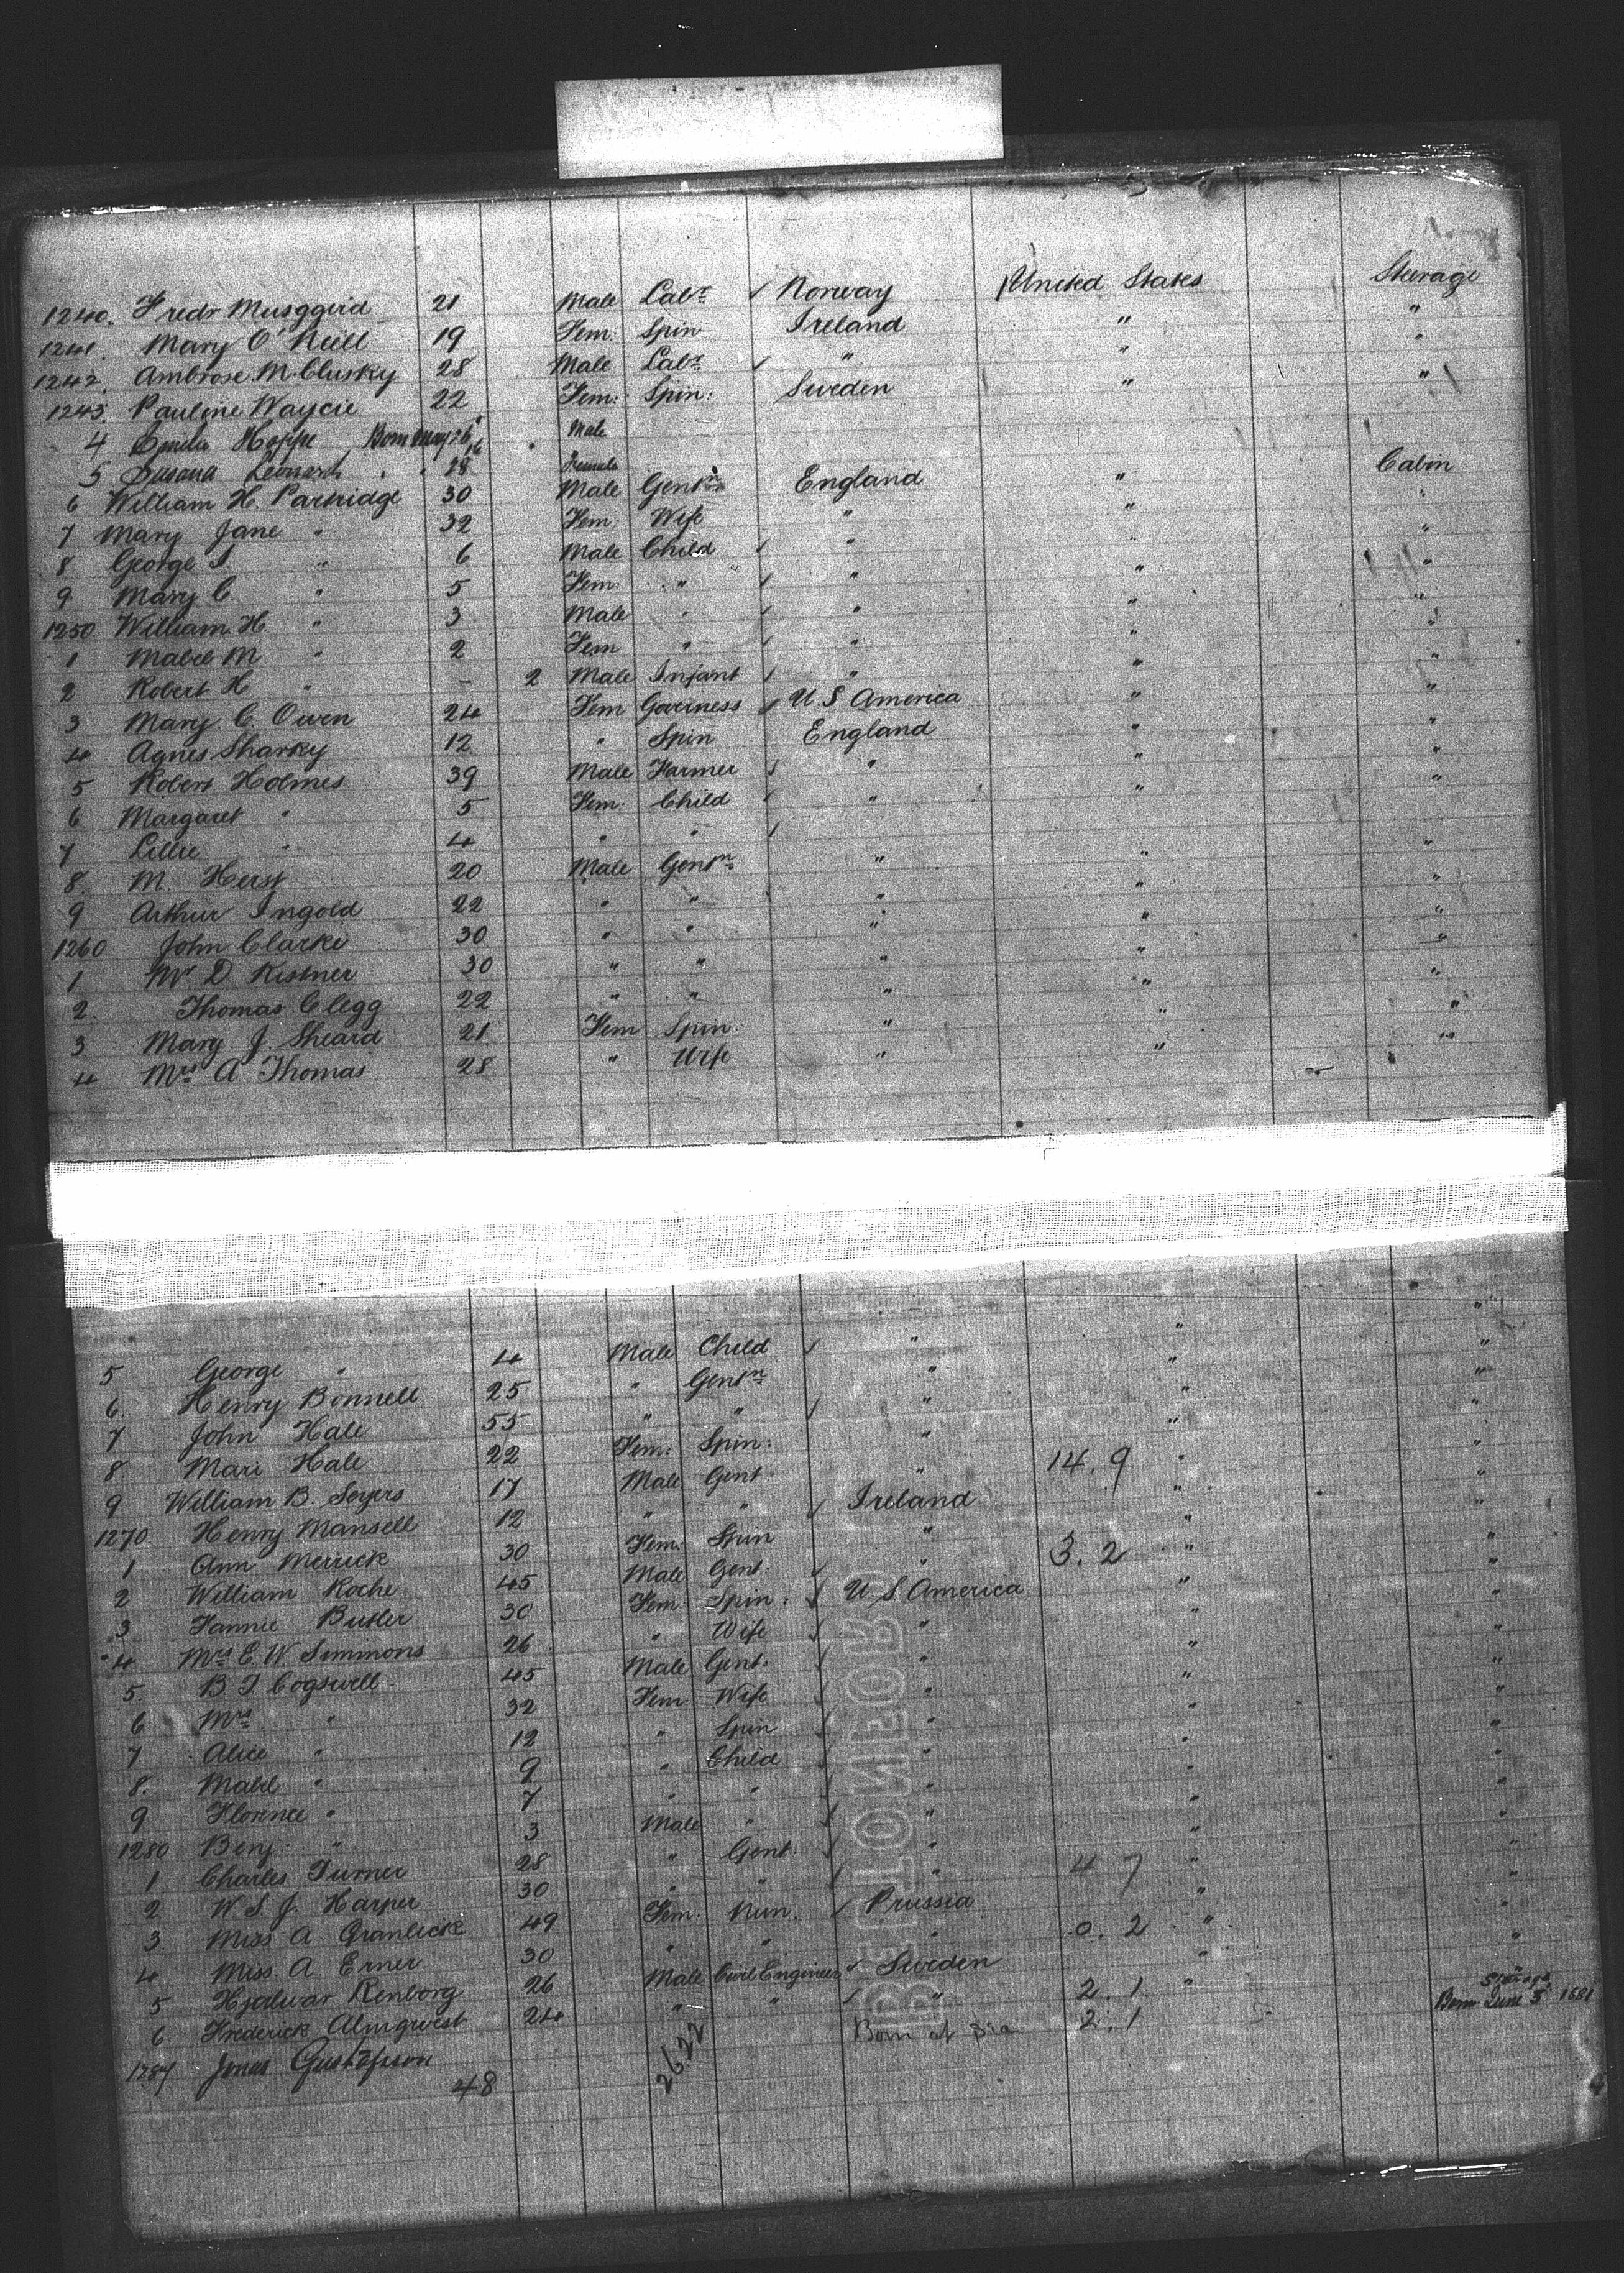 1240. Fredr Musggeid 21 Male Labr ✓ Norway United States Steerage
1241. Mary O'Neill 19 Fem: Spin Ireland " "
1242. Ambrose McClusky 28 Male Labr ✓ " " "
1243. Pauline Waycie 22 Fem: Spin: Sweden " "
4 Hoppe Born May 26 Male
5 Susana 28 Female
6 William H. Partridge 30 Male Gentn England " Cabin
7 Mary Jane " 32 Fem: Wife " " "
8 George " 6 Male Child ✓ " " "
9 Mary C. " 5 Fem: " ✓ " " "
1250 William H. " 3 Male " ✓ " " "
1 Mabel M " 2 Fem " ✓ " " "
2 Robert H " - 2 Male Infant ✓ " " "
3 Mary C. Owen 24 Fem Governess ✓ U.S America " "
4 Agnes Sharky 12 " Spin England " "
5 Robert Holmes 39 Male Farmer ✓ " " "
6 Margaret " 5 Fem: Child ✓ " " "
7 Lillie " 4 " " ✓
8. M. Herst 20 Male Gentn " " "
9 Arthur Ingold 22 " " " " "
1260 John Clarke 30 " " " " "
1 Mr D Kistner 30 " " " " "
2. Thomas Clegg 22 " " " " "
3 Mary J. Sheard 21 Fem Spin. " " "
4 Mrs A Thomas 28 " Wife " " "
5 George " 4 Male Child ✓ " " "
6. Henry Bonnell 25 " Gentn " " "
7 John Hale 55 " " ✓ " " "
8. Mari Hale 22 Fem: Spin: " " "
9 William B. Seyers 17 Male Gent " 14.9 " "
1270 Henry Mansell 12 " " ✓ Ireland " "
1 Ann Merrick 30 Fem: Spin " " "
2 William Roche 45 Male Gent. ✓ " 3.2 " "
3 Fannie Butler 30 Fem Spin: ✓ U.S. America " "
4 Mrs E. W Simmons 26 " Wife ✓ " " "
5. B T Cogswell 45 Male Gent. ✓ " " "
6 Mrs " 32 Fem: Wife ✓ " " "
7 Alice " 12 " Spin ✓ " " "
8. Mabel " 9 " Child ✓ " " "
9 Florence " 7 " " ✓ " " "
1280 Benj. " 3 Male " ✓ " " "
1 Charles Turner 28 " Gent. ✓ " " "
2 W S. J. Harper 30 " " ✓ " 4 7 " "
3 Miss A Granlick 49 Fem: Nun. ✓ Prussia " "
4 Miss. A Erner 30 " " " 0.2 " "
5 Hjalwar Renborg 26 Male Civil Engineer ✓ Sweden " "
6 Frederick Almqwest 24 " " ✓ " 2.1 "
1287 Jonas Gustafsson Born at Sea 2.1 Born June 5 1881
48 2622